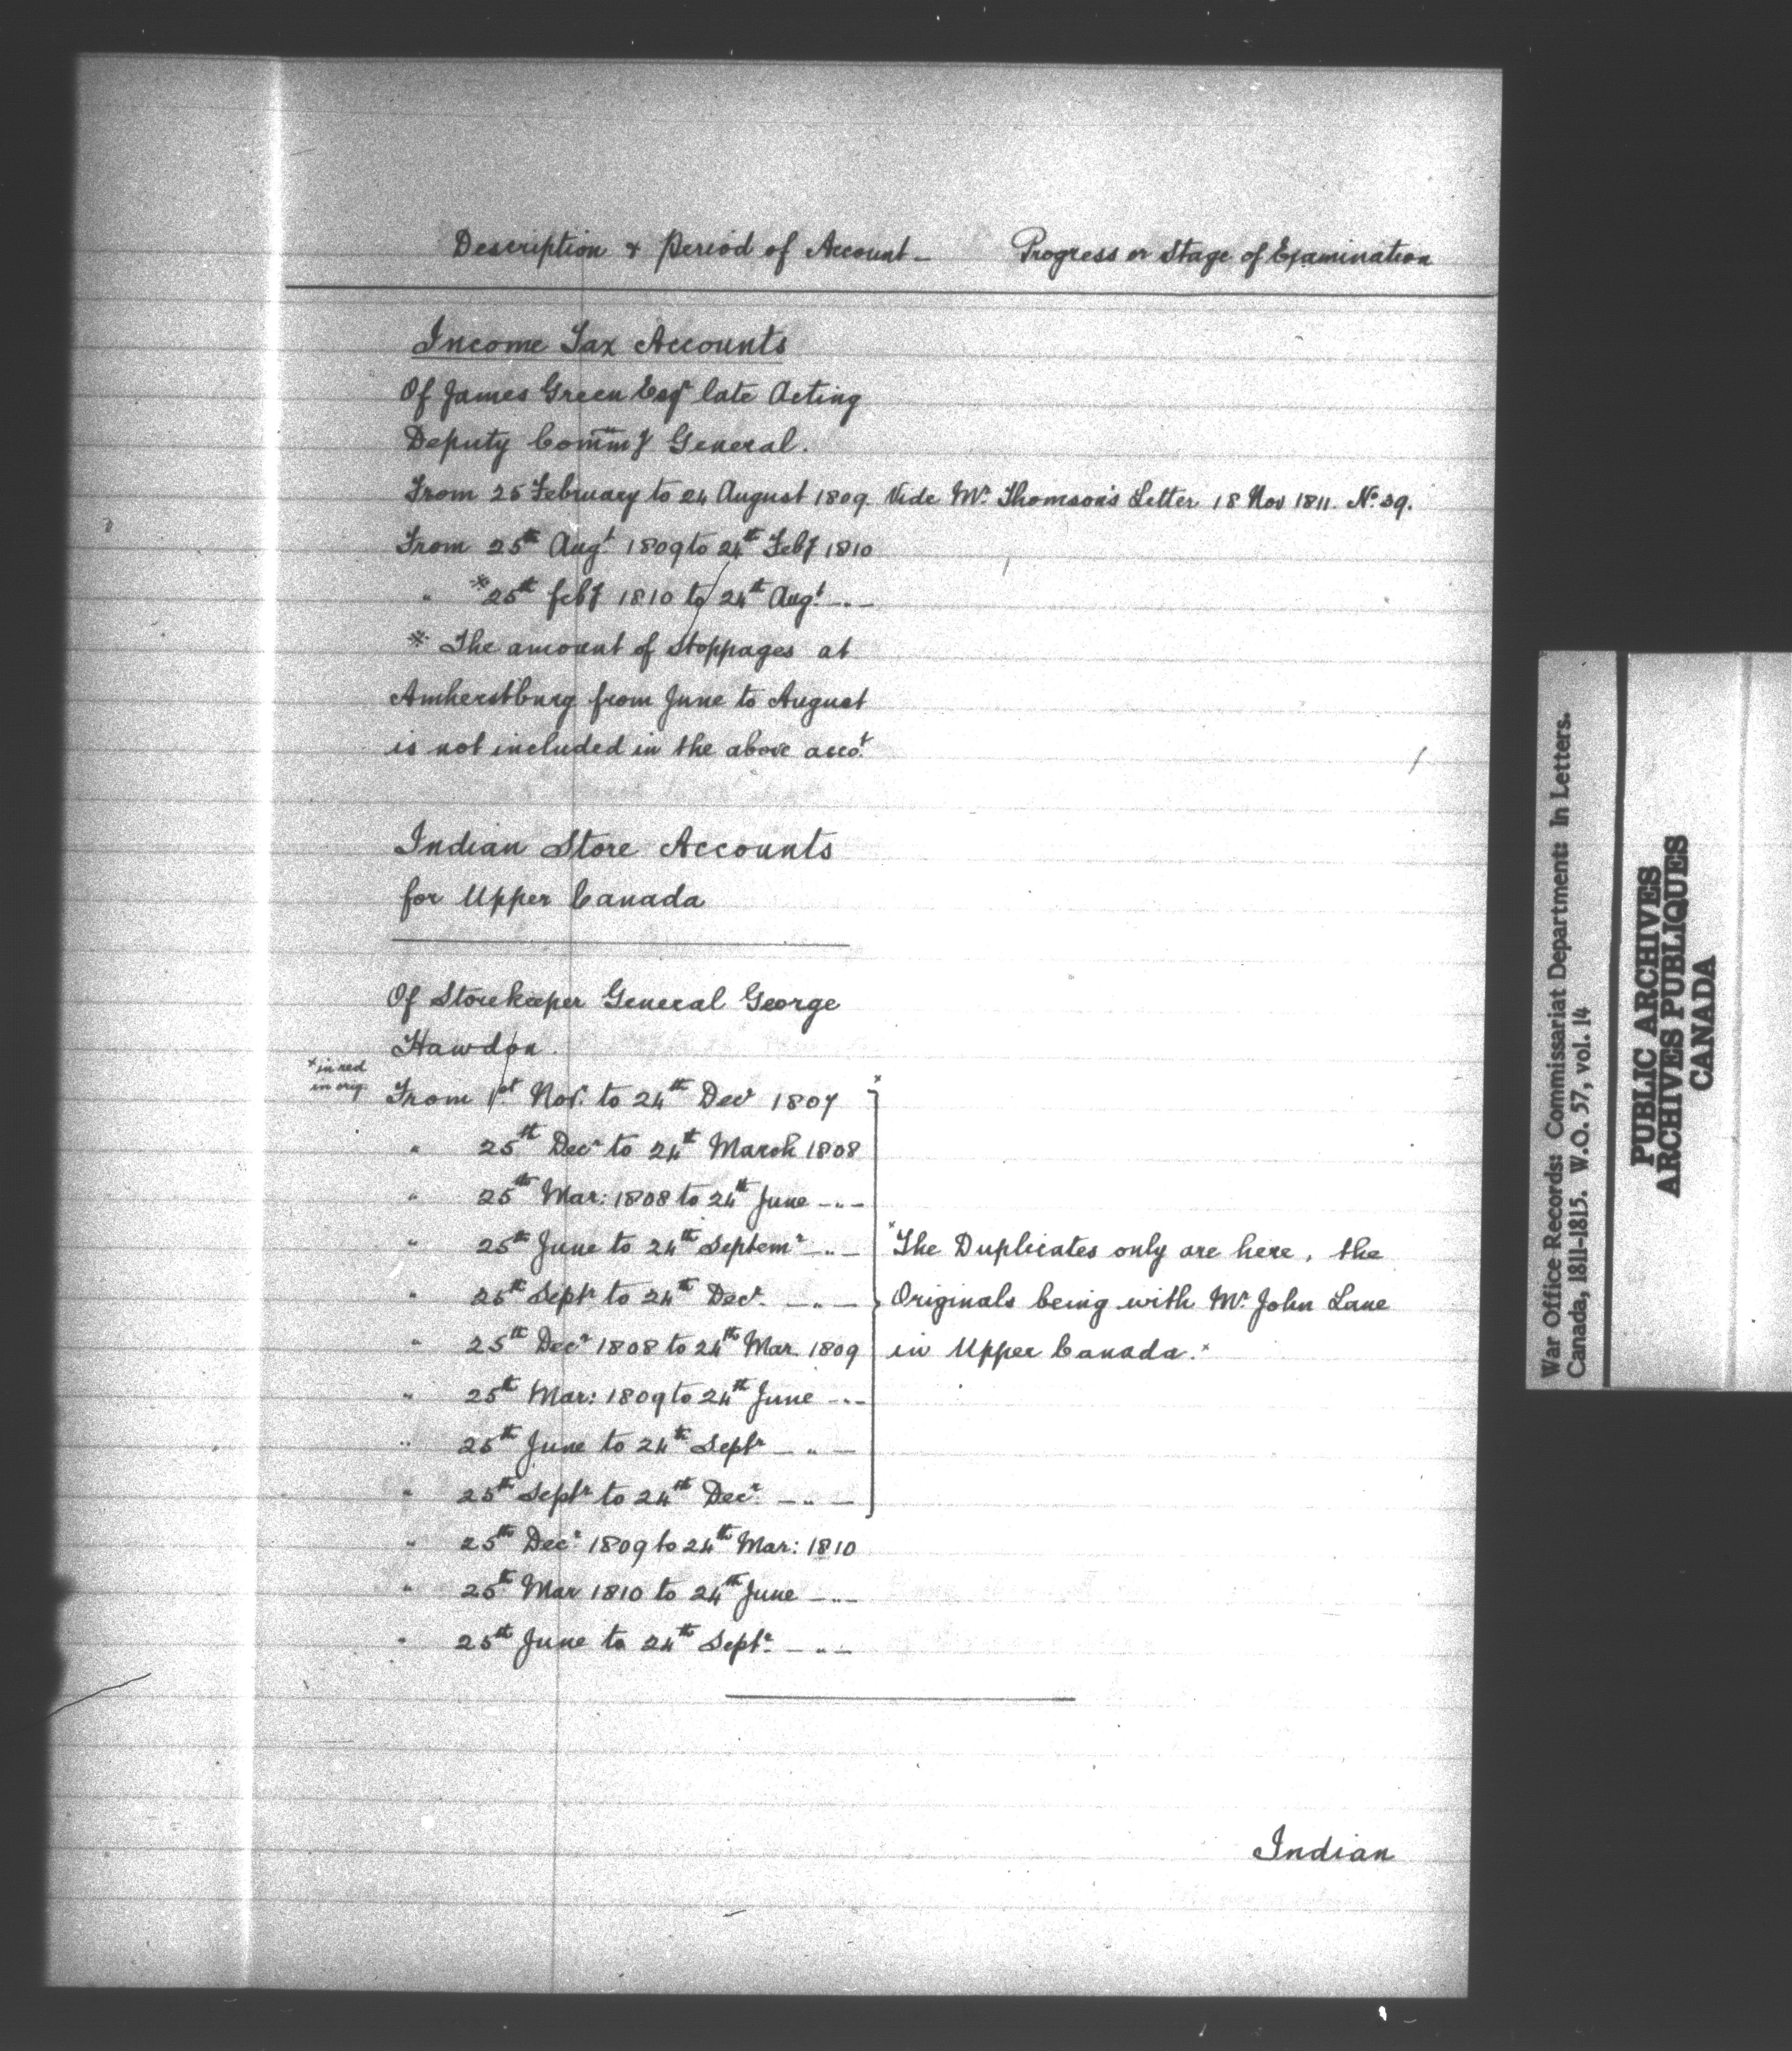 Description & Period of Account - Progress or Stage of Examination
Income Tax Accounts
Of James Green Esqr late Acting
Deputy Commy General.
From 25 February to 24 August 1809. Vide Mr. Thomson's Letter 18 Nov 1811. No. 39.
From 25th Augt. 1809 to 24th Feby 1810
" *25th feby 1810 to 24th Augt. - " -
* The amount of stoppages at
Amherstburg from June to August
is not included in the above acct.
Indian Store Accounts
for Upper Canada
Of Storekeeper General George
Hawdon.
x in red
in orig.
From 1st Novr. to 24th Decr 1807
" 25th Decr to 24th March 1808
" 25th Mar: 1808 to 24th June - " -
" 25th June to 24th Septemr - " -
" 25th Septr to 24th Decr. - " -
" 25th Decr 1808 to 24th Mar. 1809
" 25th Mar: 1809 to 24th June - " -
" 25th June to 24th Septr - " -
" 25th Septr to 24th Decr. - " -
x The Duplicates only are here, the
Originals being with Mr. John Lane
in Upper Canada. x
" 25th Decr. 1809 to 24th Mar: 1810
" 25th Mar 1810 to 24th June - " -
" 25th June to 24th Septr. - " -
Indian
War Office Records: Commissariat Department: In Letters.
Canada, 1811-1815. W.O. 57, vol. 14
PUBLIC ARCHIVES
ARCHIVES PUBLIQUES
CANADA